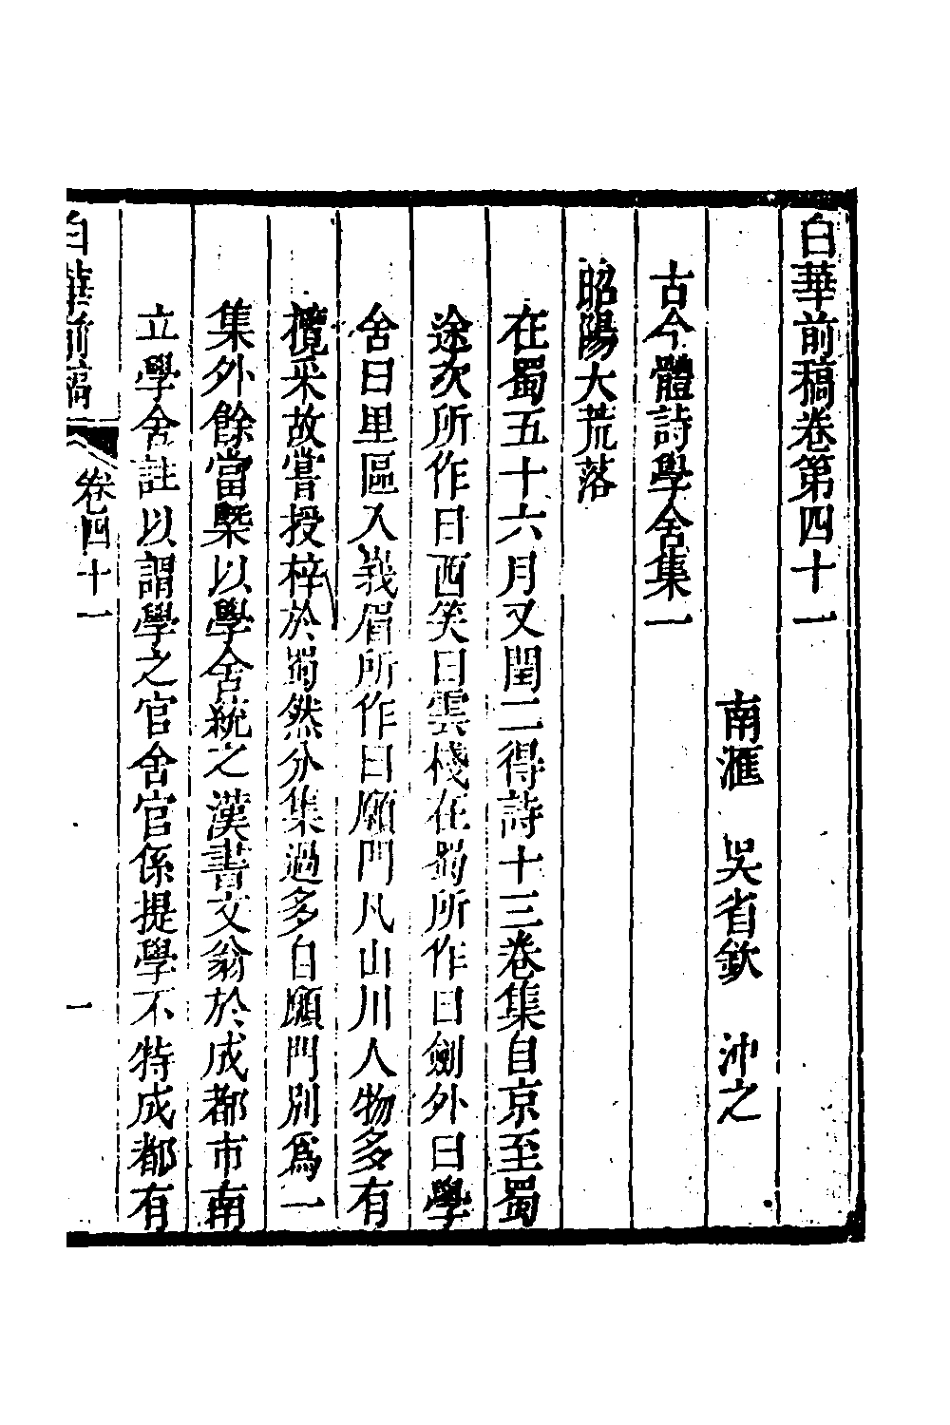 白華前稿卷第四十一
南滙 吳省欽 沖之
古今體詩學舍集一
昭陽大荒落
在蜀五十六月又閏二得詩十三卷集自京至蜀
途次所作曰西笑曰雲棧在蜀所作曰劍外曰學
舍曰里區入峩眉所作曰願門凡山川人物多有
攬采故嘗授梓於蜀然分集過多自願門別爲一
集外餘當槩以學舍統之漢書文翁於成都市南
立學舍註以謂學之官舍官係提學不特成都有
白華前稿 卷四十一 一